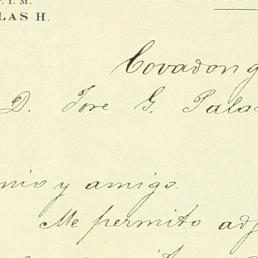 LAS H.
Covadong
D. Jore G. Pala
nio y amigo.
Me permito adj